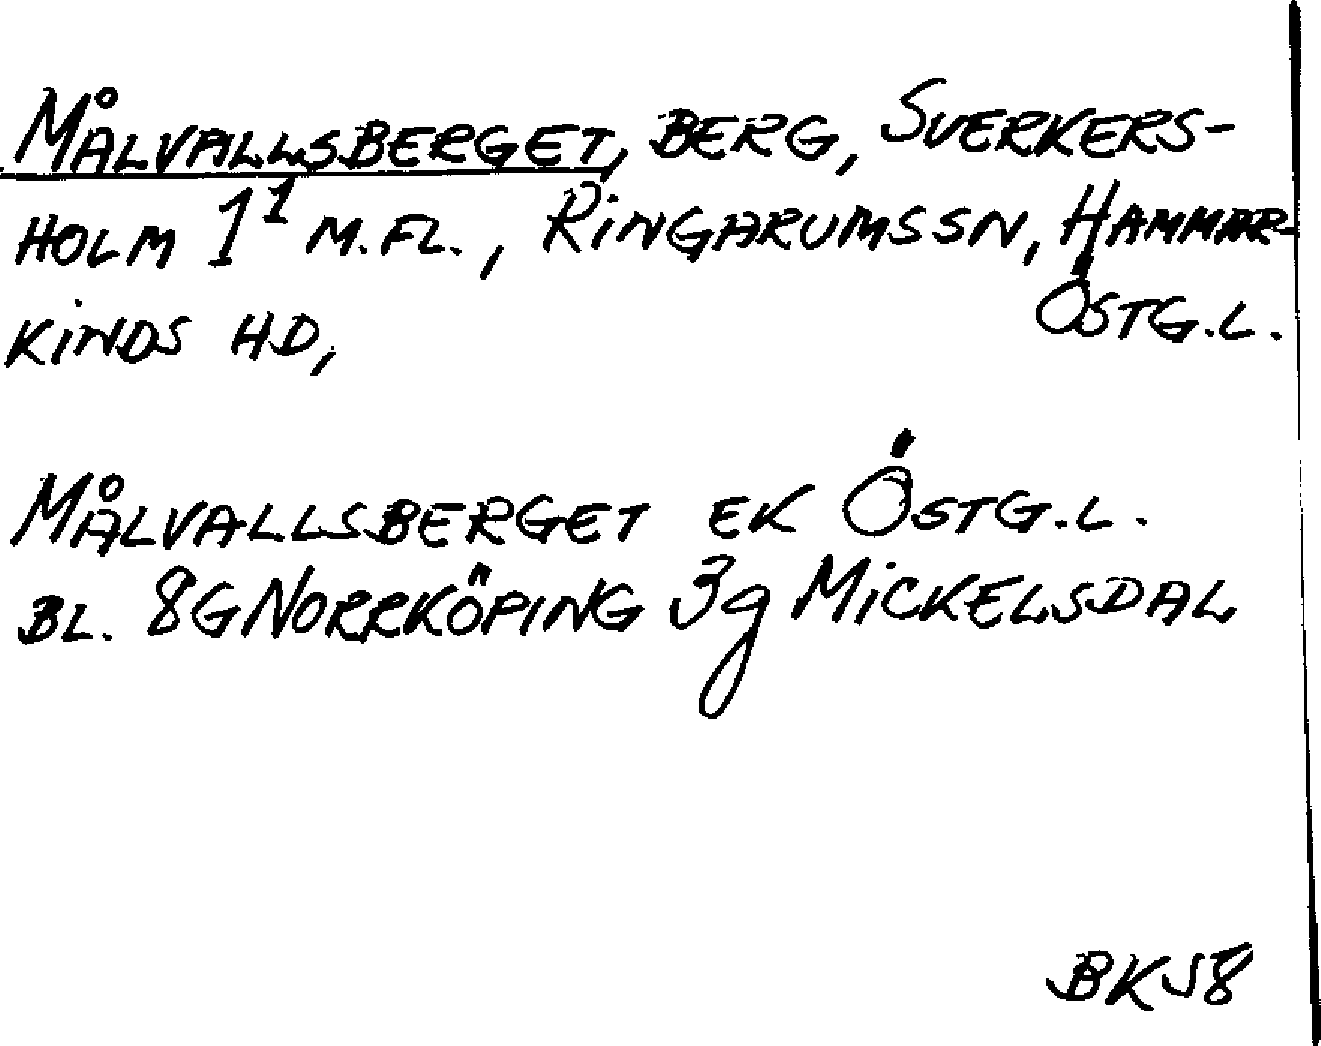 MÅLVALLSBERGET, BERG, SVERKERS-
HOLM 1¹ M.FL., RINGARUMS SN, HAMMAR-
KINDS HD, ÖSTG.L.
MÅLVALLSBERGET EK ÖSTG.L.
BL. 8G NORRKÖPING 3g MICKELSDAL
BK58